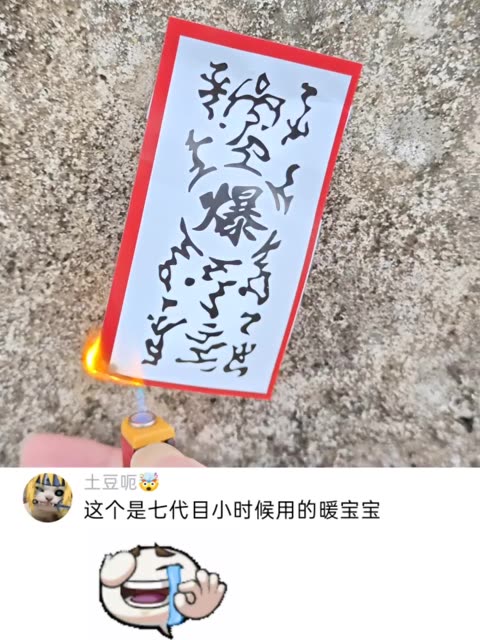 爆
土豆呃🤯
这个是七代目小时候用的暖宝宝